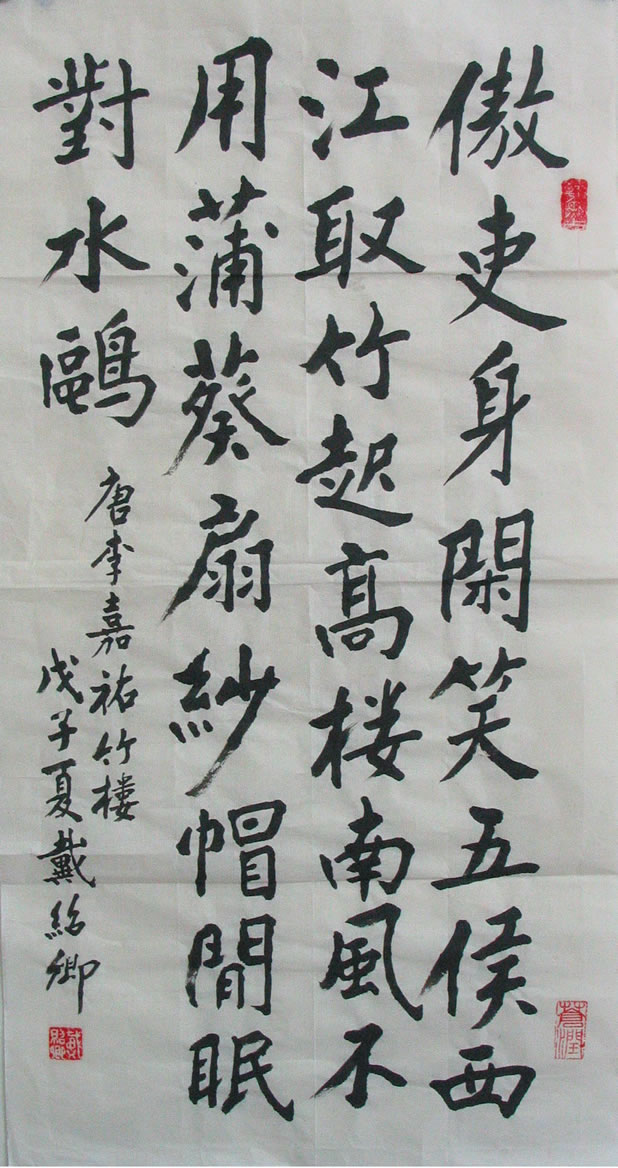 傲吏身閑笑五侯西
江取竹起高楼南風不
用蒲葵扇紗帽閒眠
對水鷗
唐李嘉祐竹楼
戊子夏戴紹卿